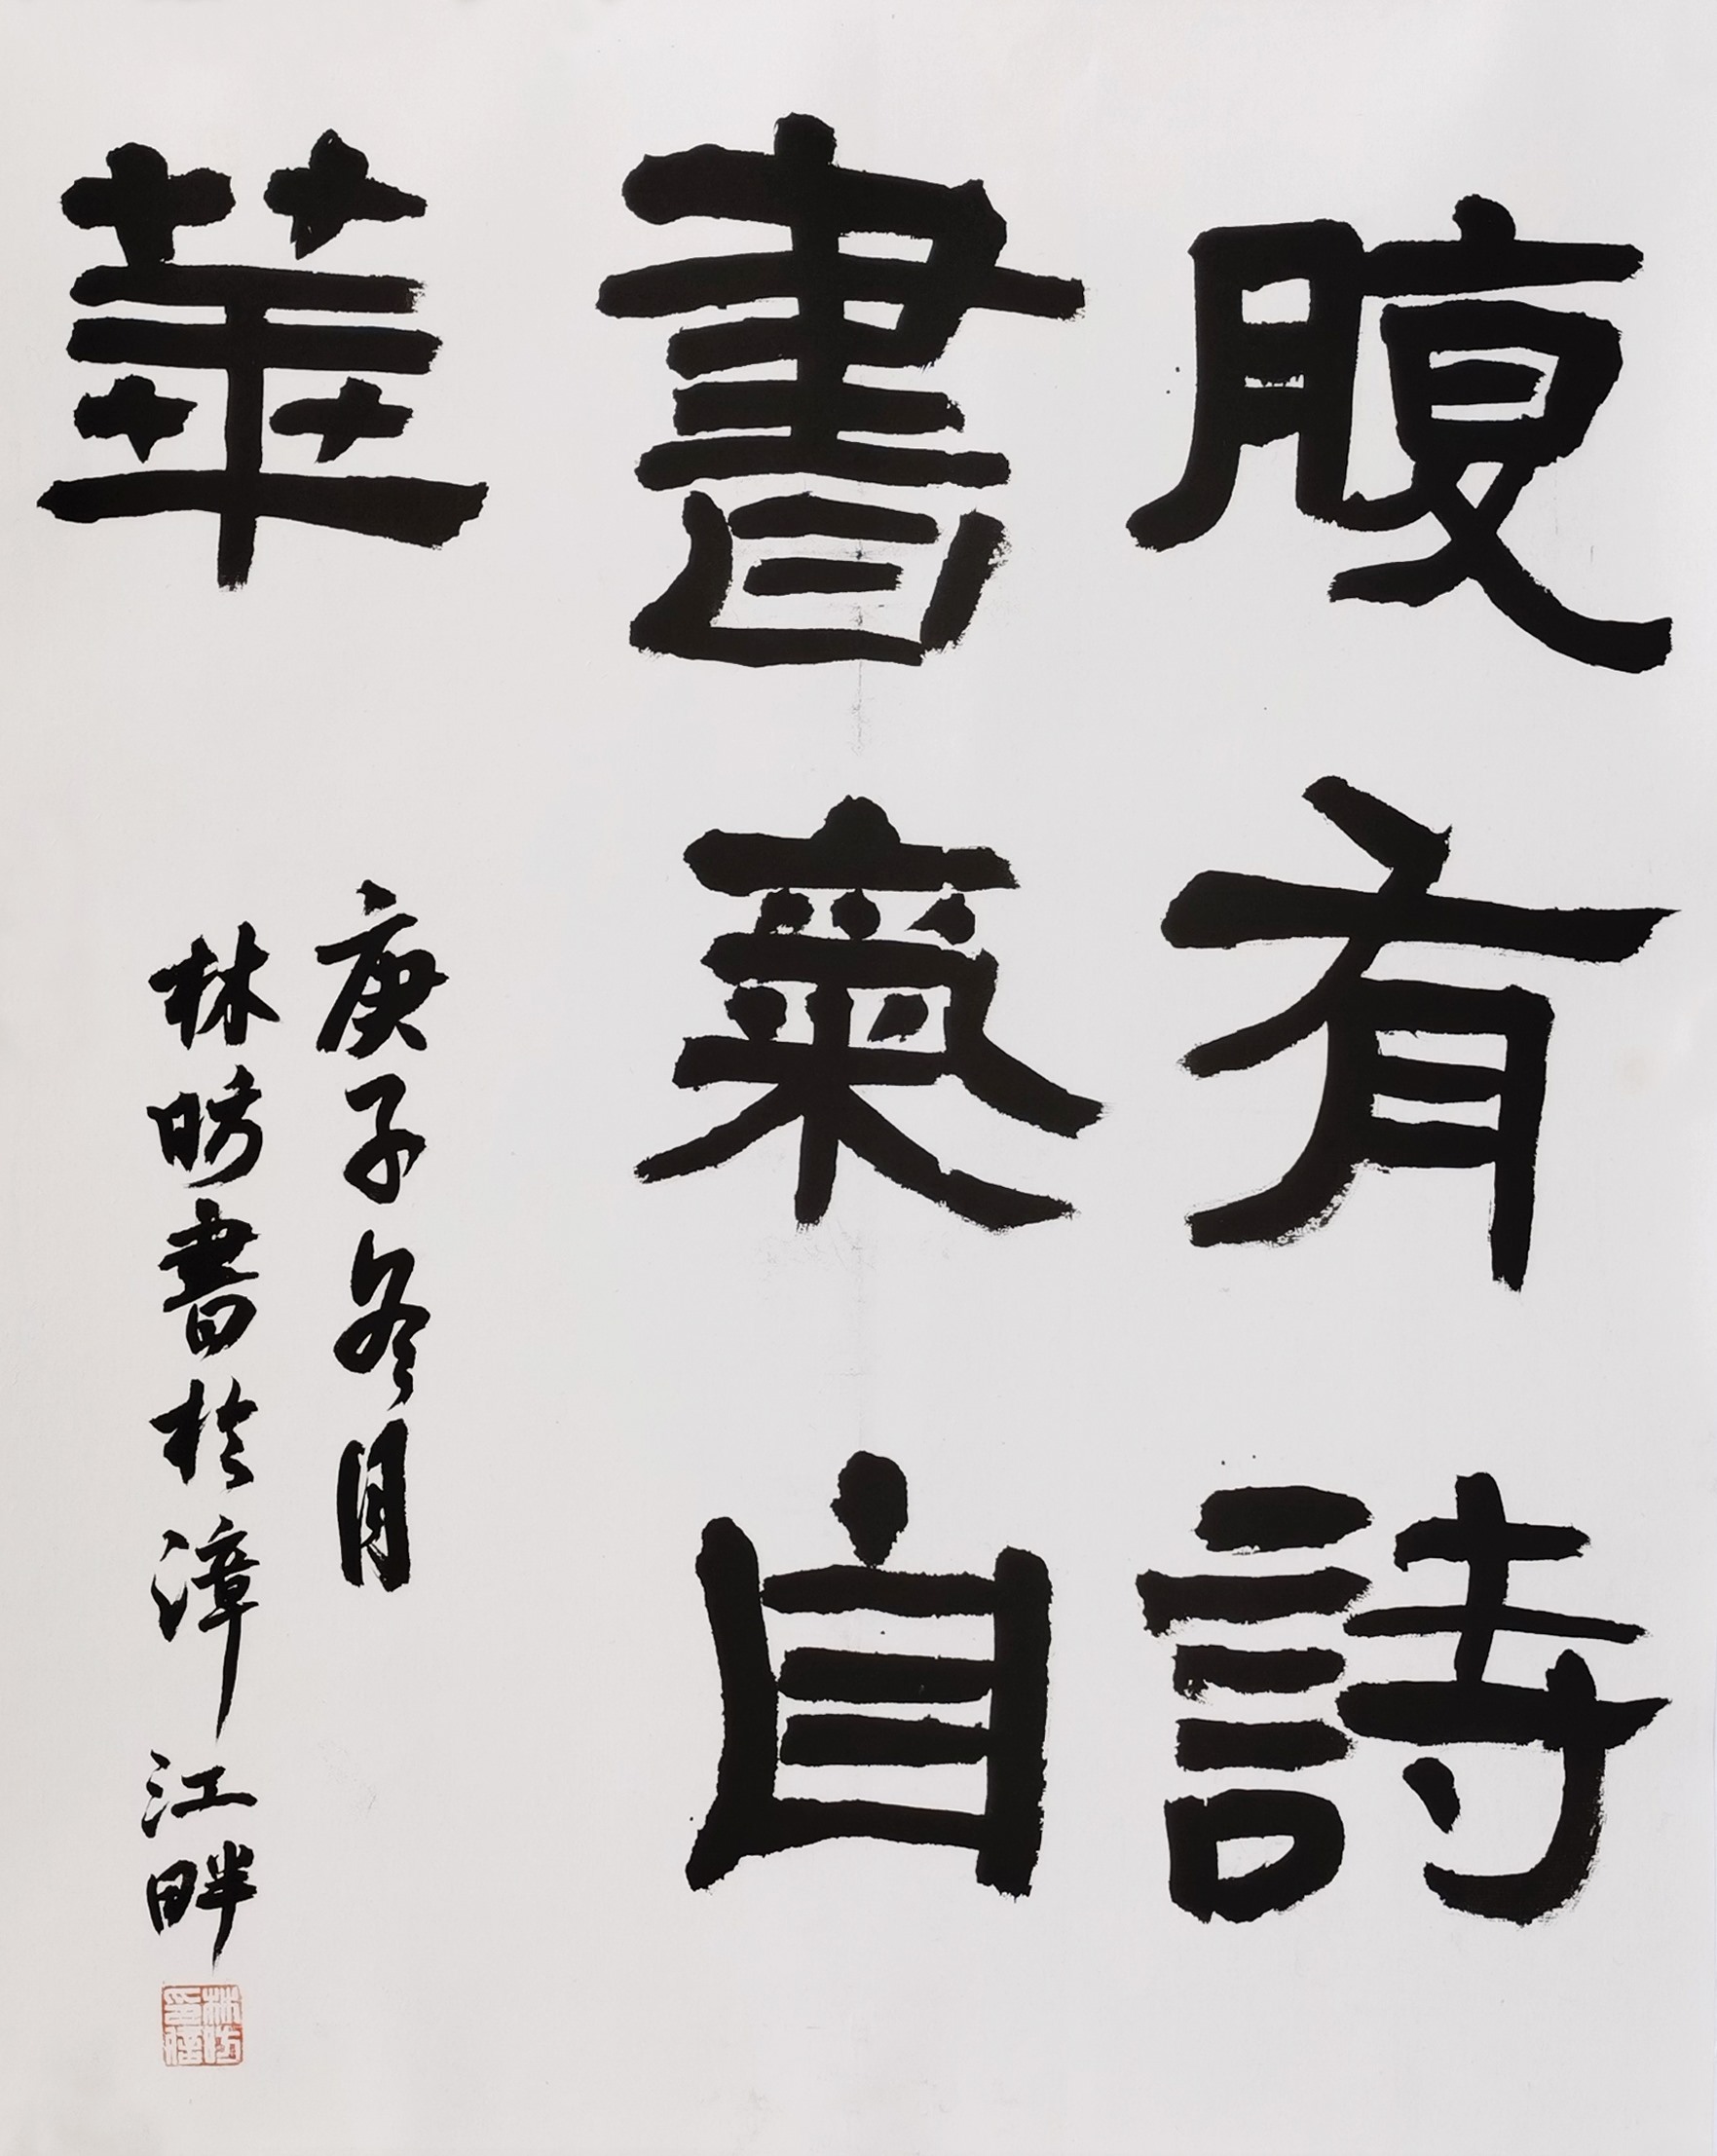 腹有詩
書氣自
華
庚子冬月
林昉書於漳江畔